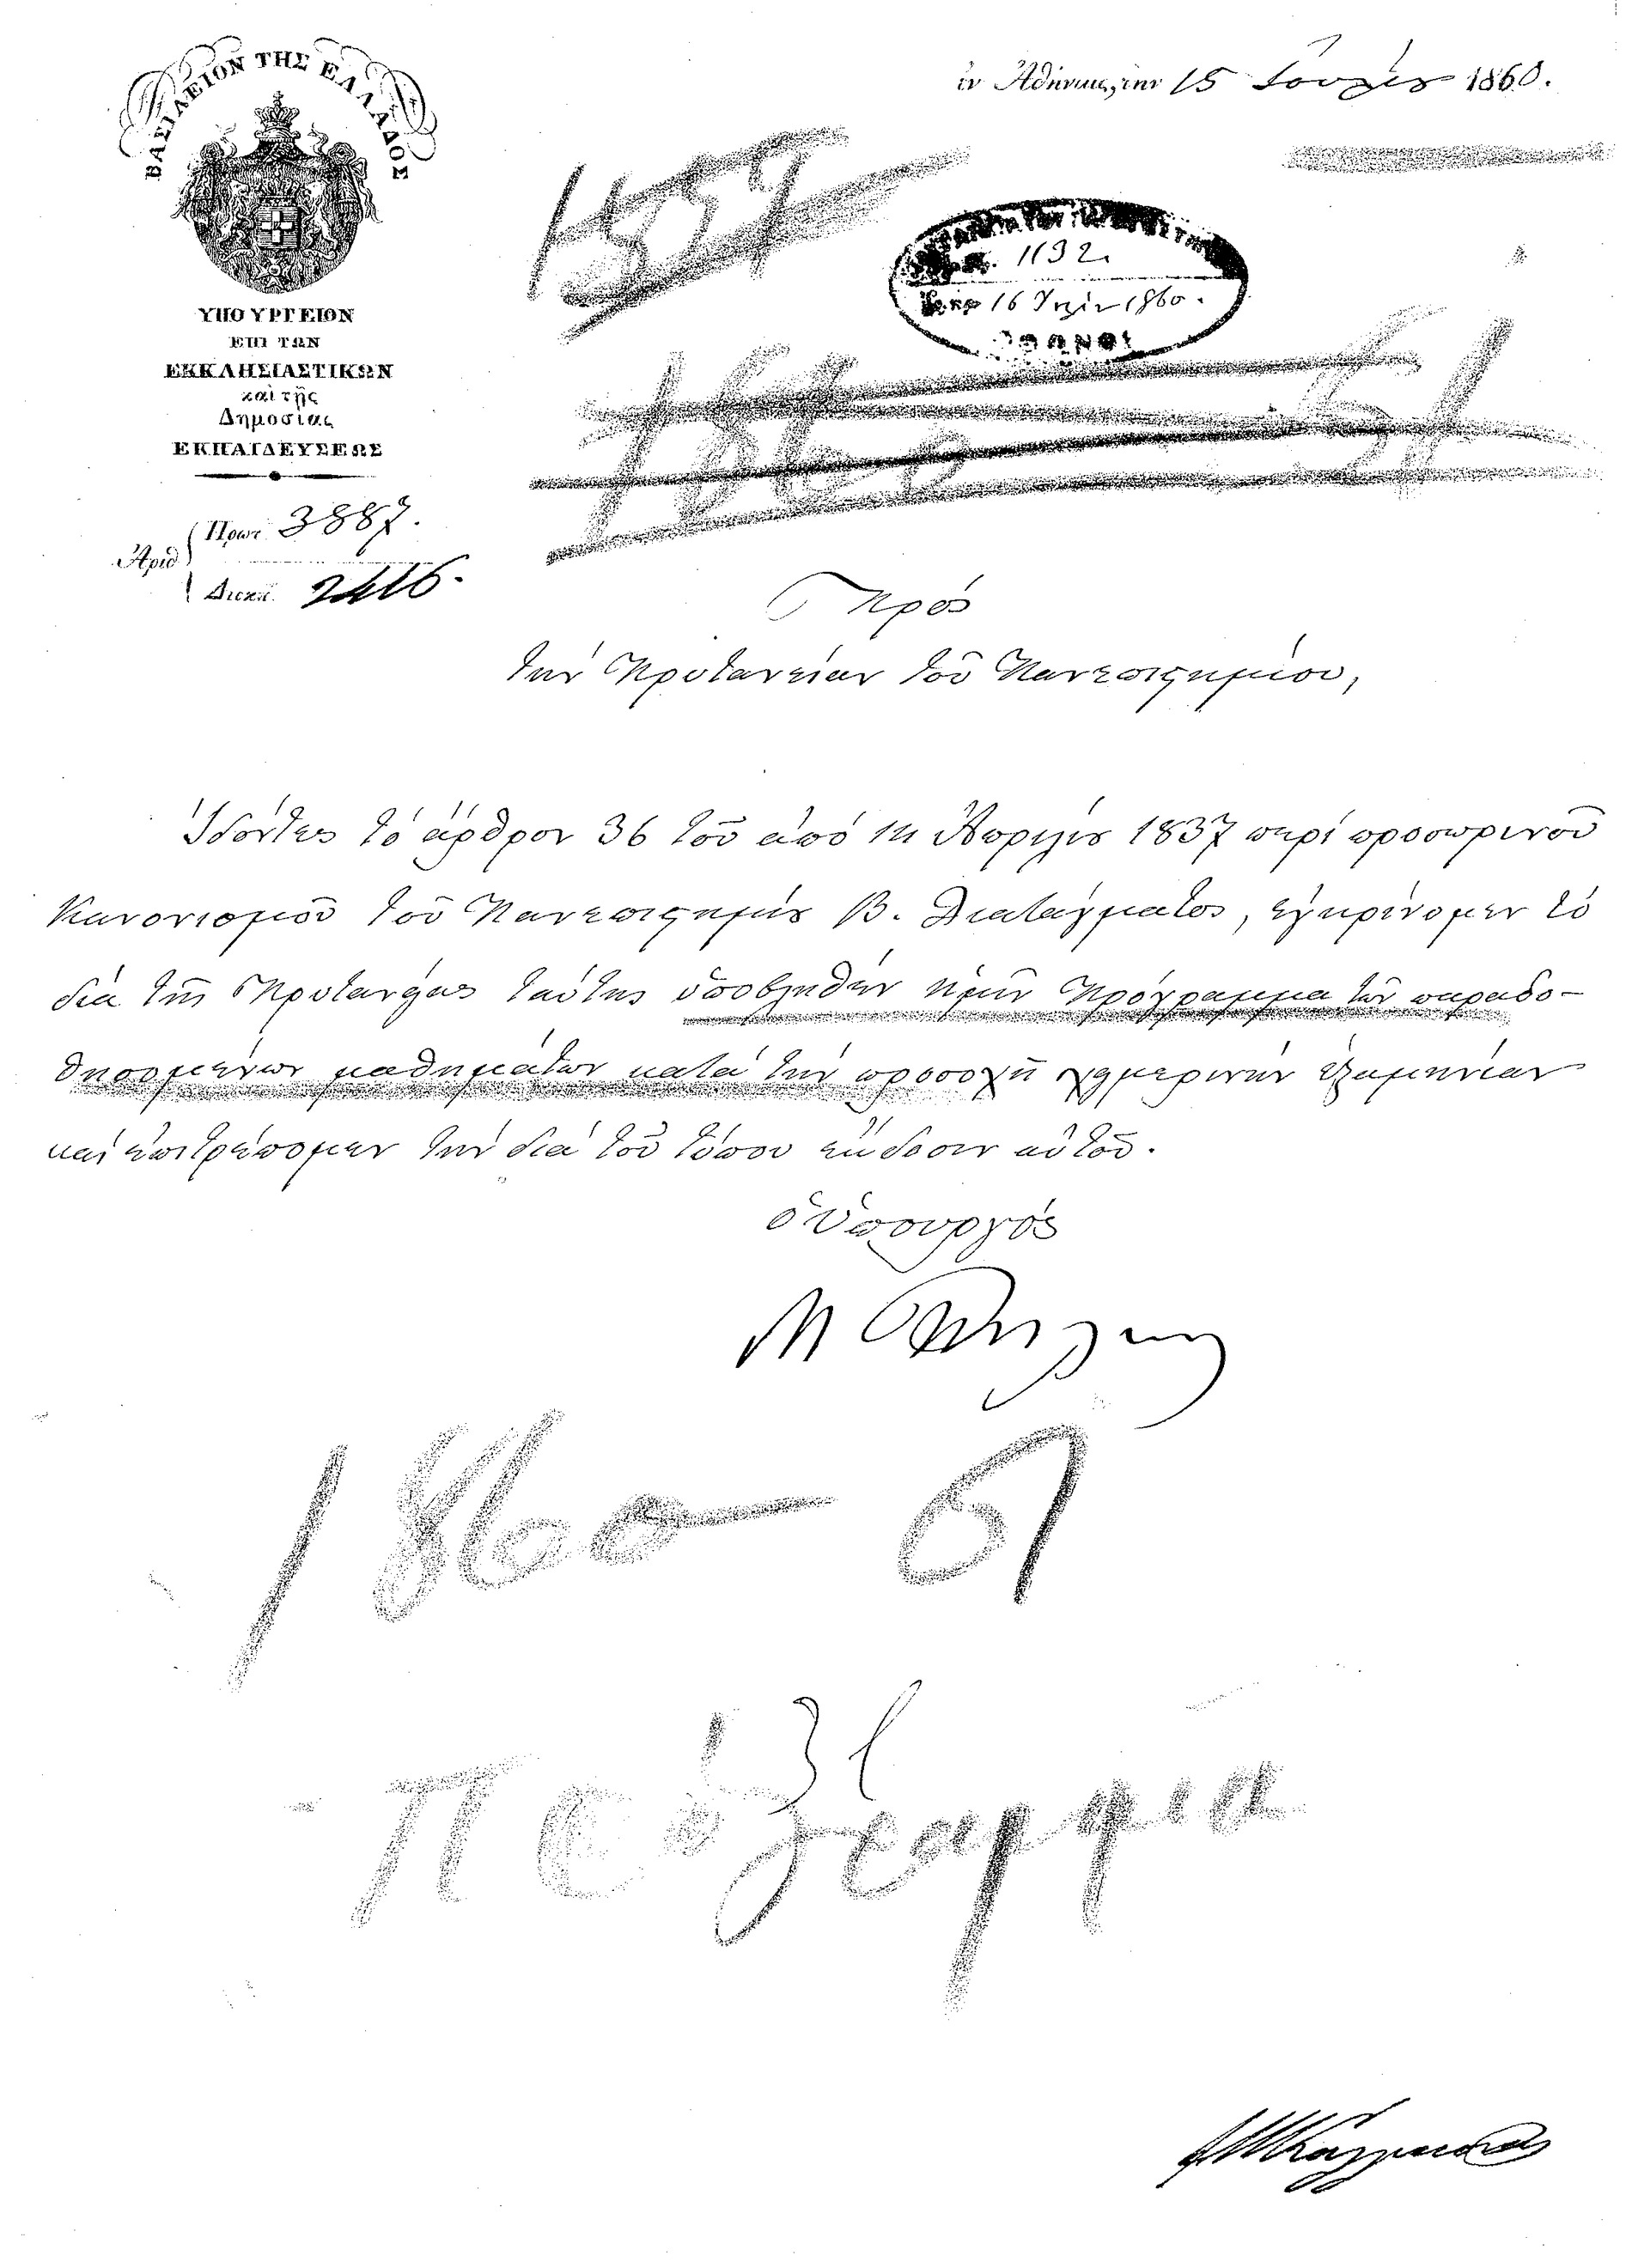 ΒΑΣΙΛΕΙΟΝ ΤΗΣ ΕΛΛΑΔΟΣ
ἐν Ἀθήναις, τὴν 15 Ἰουλίου 1860.
1192.
16 Ἰουλίου 1860.
ΥΠΟΥΡΓΕΙΟΝ
ΕΠΙ ΤΩΝ
ΕΚΚΛΗΣΙΑΣΤΙΚΩΝ
καὶ τῆς
Δημοσίας
ΕΚΠΑΙΔΕΥΣΕΩΣ
Ἀριθ Πρωτ. 3887.
Διεκπ. 2416.
Πρὸς
τὴν Πρυτανείαν τοῦ Πανεπιστημίου,
Ἰδόντες τὸ ἄρθρον 36 τοῦ ἀπὸ 14 Ἀπριλίου 1837 περὶ προσωρινοῦ
Κανονισμοῦ τοῦ Πανεπιστημίου Β. Διατάγματος, ἐγκρίνομεν τὸ
διὰ τῆς Πρυτανείας ταύτης ὑποβληθὲν ἡμῖν Πρόγραμμα τῶν παραδο-
θησομένων μαθημάτων κατὰ τὴν προσεχῆ χειμερινὴν ἑξαμηνίαν
καὶ ἐπιτρέπομεν τὴν διὰ τοῦ τύπου ἔκδοσιν αὐτοῦ.
ὁ Ὑπουργὸς
1860-61